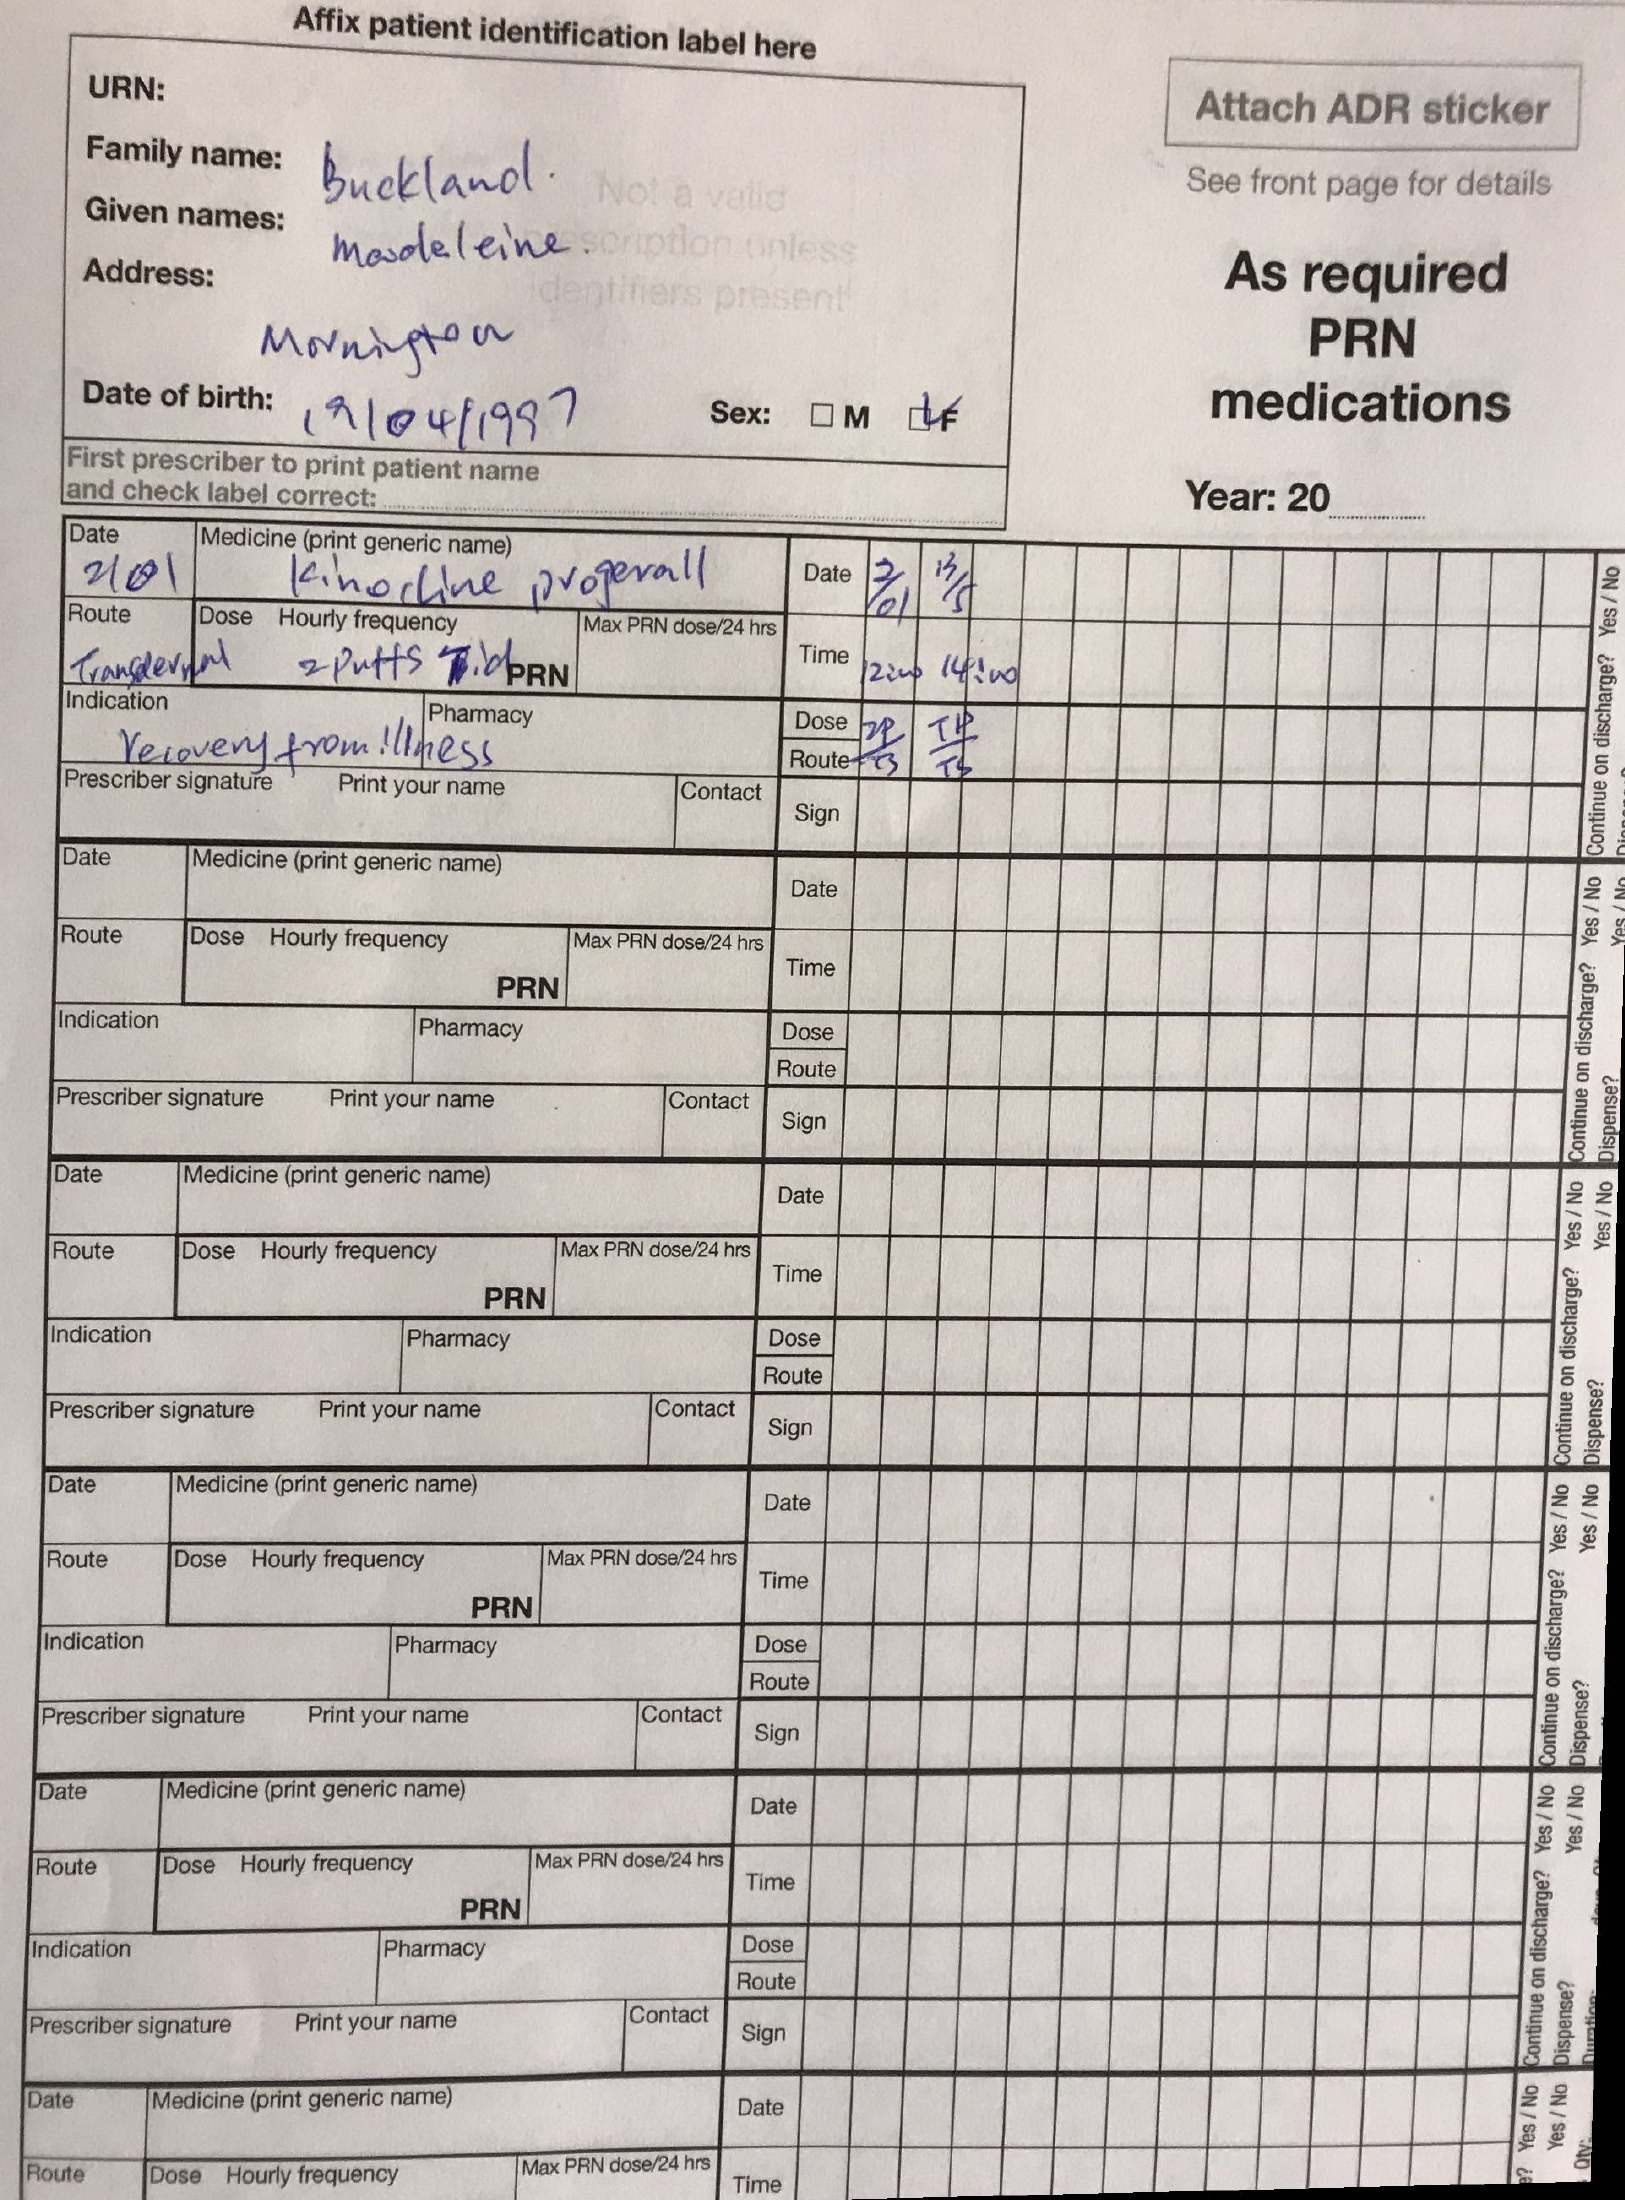 Affix patient identification label here
URN:
Family name: Buckland.
Given names: Madeleine.
Address:
Mornington
Not a valid
prescription unless
identifiers present
Date of birth: 19/04/1997 Sex: M F
First prescriber to print patient name
and check label correct:
Attach ADR sticker
See front page for details
As required
PRN
medications
Year: 20
Date Medicine (print generic name) Date 2/01 13/5
2/01
Route Dose Hourly frequency Max PRN dose/24 hrs Time 12:00 14:00
Transdermal 2 Puffs Tid PRN
Indication Pharmacy Dose 2P
recovery from illness Route TS TS
Prescriber signature Print your name Contact Sign
Continue on discharge? Yes / No
Date Medicine (print generic name) Date
Route Dose Hourly frequency Max PRN dose/24 hrs Time
PRN
Indication Pharmacy Dose
Route
Prescriber signature Print your name Contact Sign
Continue on discharge? Yes / No
Dispense? Yes / No
Date Medicine (print generic name) Date
Route Dose Hourly frequency Max PRN dose/24 hrs Time
PRN
Indication Pharmacy Dose
Route
Prescriber signature Print your name Contact Sign
Continue on discharge? Yes / No
Dispense? Yes / No
Date Medicine (print generic name) Date
Route Dose Hourly frequency Max PRN dose/24 hrs Time
PRN
Indication Pharmacy Dose
Route
Prescriber signature Print your name Contact Sign
Continue on discharge? Yes / No
Dispense? Yes / No
Date Medicine (print generic name) Date
Route Dose Hourly frequency Max PRN dose/24 hrs Time
PRN
Indication Pharmacy Dose
Route
Prescriber signature Print your name Contact Sign
Continue on discharge? Yes / No
Dispense? Yes / No
Date Medicine (print generic name) Date
Route Dose Hourly frequency Max PRN dose/24 hrs Time
Yes / No
Yes / No
Qty: